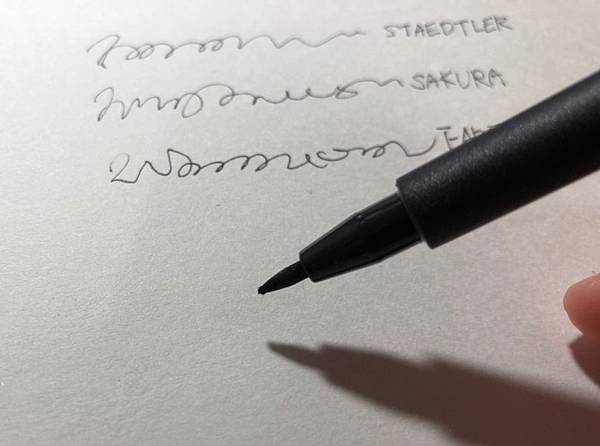 STAEDTLER
SAKURA